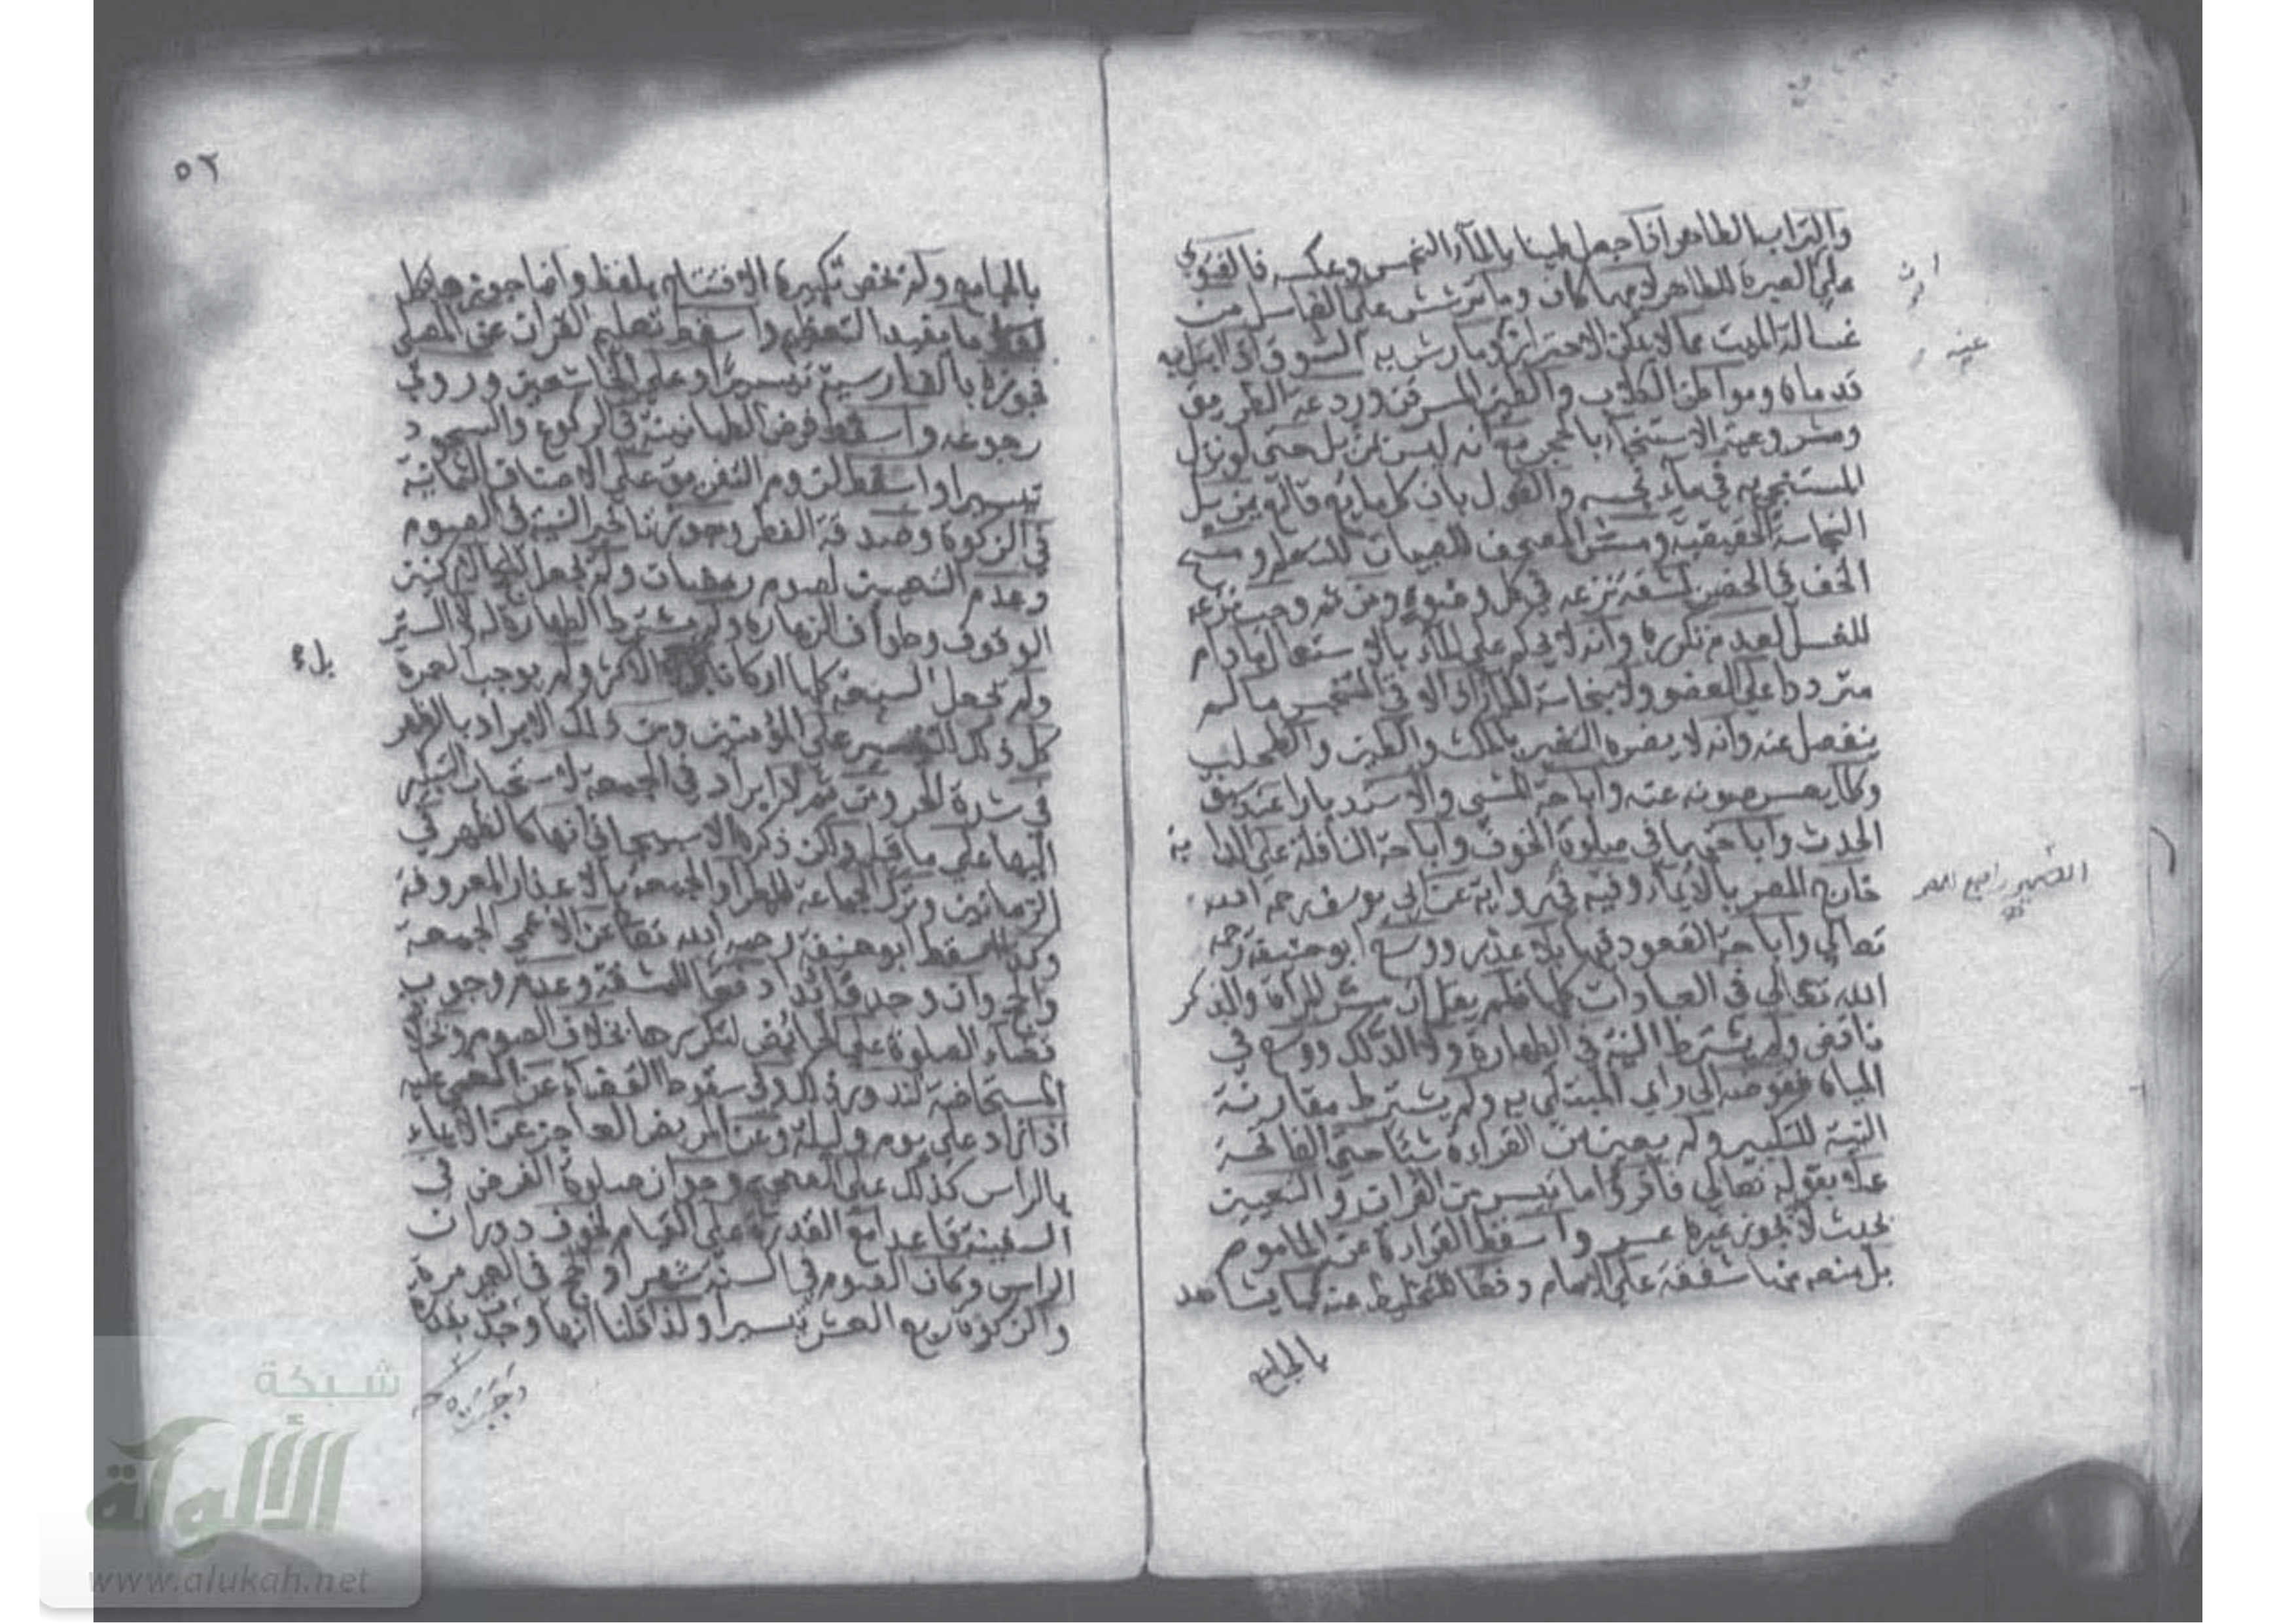 والتراب الطاهر اذا جعل طينا بالماء النجس وعكسه فالفتوى
على العبرة للطاهر ايهما كان وما ترشش على الغاسل من
غسالة الميت مما لا يمكن الاحتراز وما رش به السوق اذا ابتل به
قدماه ومواطئ الكلاب والطين المسرقن وردغة الطريق
ومشروعية الاستنجاء بالحجر مع انه ليس بمزيل حتى لو نزل
المستنجي به في ماء نجسه والقول بان كل مايع قالع يزيل
النجاسة الحقيقية ومس المصحف للصبيان للتعلم ومسح
الخف في الحضر لمشقة نزعه في كل وضوء ومن ثم وجب نزعه
للغسل لعدم تكرره وانه لا يحكم على الماء بالاستعمال ما دام
مترددا على العضو ولا بنجاسة الماء اذا لاقى المتنجس ما لم
ينفصل عنه وانه لا يضره التغير بالمكث والطين والطحلب
وكلما يعسر صونه عنه واباحة المشي والاستدبار عند سبق
الحدث واباحتهما في صلوة الخوف واباحة النافلة على الدابة
خارج المصر بالايماء وفيه في رواية عن ابي يوسف رحمه الله
تعالى واباحة القعود فيها بلا عذر ووسع ابو حنيفة رحمه
الله تعالى في العبادات كلها فلم يقل ان مس المراة والذكر
ناقض ولم يشترط النية في الطهارة ولا الدلك ووسع في
المياه ففوضه الى راي المبتلى به ولم يشترط مقارنة
النية للتكبير ولم يعين من القراءة شيئا حتى الفاتحة
عملا بقوله تعالى فاقرؤا ما تيسر من القران والتعيين
بحيث لا يجوز غيره عسر واسقط القراءة عن الماموم
بل منعه منها شفقة على الامام دفعا للتخليط عنه كما يشاهد
بالجامع
عنه
٥٢
بالجامع ولم تخص تكبيرة الافتتاح بلفظ وانما جوزها بكل
ما يفيد التعظيم واسقط تعليم القران عن المصلي
فجوزه بالفارسية تيسيرا على الخاشعين وروي
رجوعه واسقط فرض الطمانينة في الركوع والسجود
تيسيرا واسقط لزوم التفريق على الاصناف الثمانية
في الزكوة وصدقة الفطر وجوز تاخير النية في الصوم
وعدم التعيين لصوم رمضان ولم يجعل للحج الا ركنين
الوقوف وطواف الزيارة ولم يشترط الطهارة له ولا الستر
ولم تجعل السبعة كلها اركانا الاكثر ولم يوجب العمرة
كل ذلك للتيسير على المؤمنين ومن ذلك الابراد بالظهر
في شدة الحر ومن ثم لا ابراد في الجمعه لاستحباب التبكير
اليها على ما قيل ولكن ذكره الاسبيجابي انها كالظهر في
الزمانين وترك الجماعة للمطر والجمعة بالاعذار المعروفة
وكذا اسقط ابو حنيفة رحمه الله تعالى عن الاعمى الجمعة
والحج وان وجد قائدا دفعا للمشقة وعدم وجوب
قضاء الصلوة على الحائض لتكررها بخلاف الصوم وبخلاف
المستحاضة لندور ذلك وفي سقوط القضاء عن المغمى عليه
اذا زاد على يوم وليلة وعن المريض العاجز عن الايماء
بالراس كذلك على الصحيح وجواز صلوة الفرض في
السفينة قاعدا مع القدرة على القيام لخوف دوران
الراس وكان الصوم في السنة شهرا والحج في العمر مرة
والزكوة ربع العشر تيسيرا ولذا قلنا انها وجبت بقدرة
بل